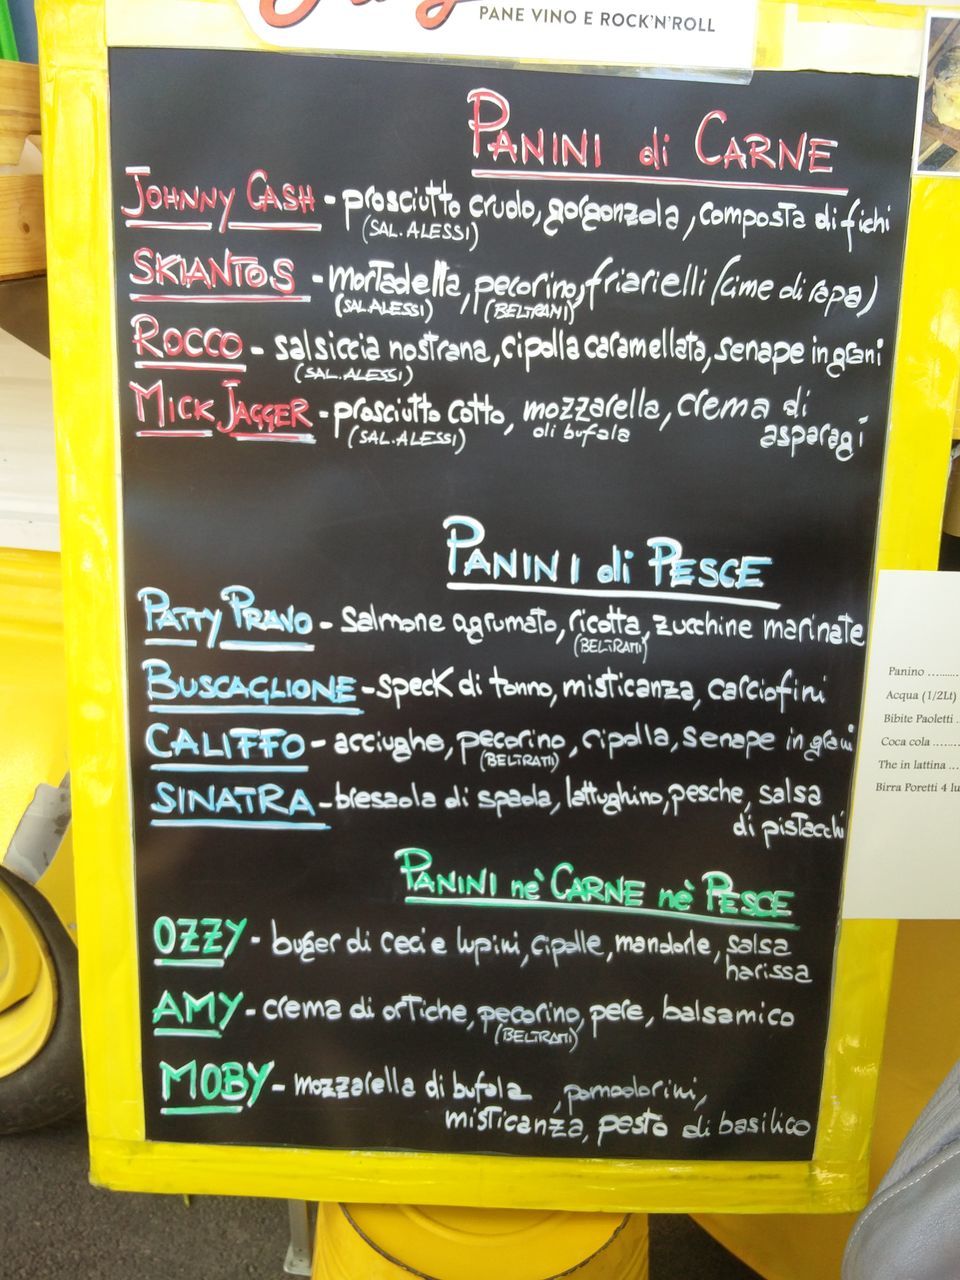 PANE VINO E ROCK'N'ROLL
PANINI di CARNE
JOHNNY CASH - prosciutto crudo, gorgonzola, composta di fichi
(SAL. ALESSI)
SKIANTOS - mortadella, pecorino, friarielli (cime di rapa)
(SAL. ALESSI) (BELTRAMI)
ROCCO - salsiccia nostrana, cipolla caramellata, senape in grani
(SAL. ALESSI)
MICK JAGGER - prosciutto cotto, mozzarella, crema di
(SAL. ALESSI) di bufala asparagi
PANINI di PESCE
PATTY PRAVO - salmone agrumato, ricotta, zucchine marinate
(BELTRAMI)
BUSCAGLIONE - speck di tonno, misticanza, carciofini
CALIFFO - acciughe, pecorino, cipolla, senape in grani
(BELTRAMI)
SINATRA - bresaola di spada, lattughino, pesche, salsa
di pistacchi
PANINI nè CARNE nè PESCE
OZZY - buger di ceci e lupini, cipolle, mandorle, salsa
harissa
AMY - crema di ortiche, pecorino, pere, balsamico
(BELTRAMI)
MOBY - mozzarella di bufala, pomodorini,
misticanza, pesto di basilico
Panino .........
Acqua (1/2Lt)
Bibite Paoletti .
Coca cola .......
The in lattina ...
Birra Poretti 4 lu